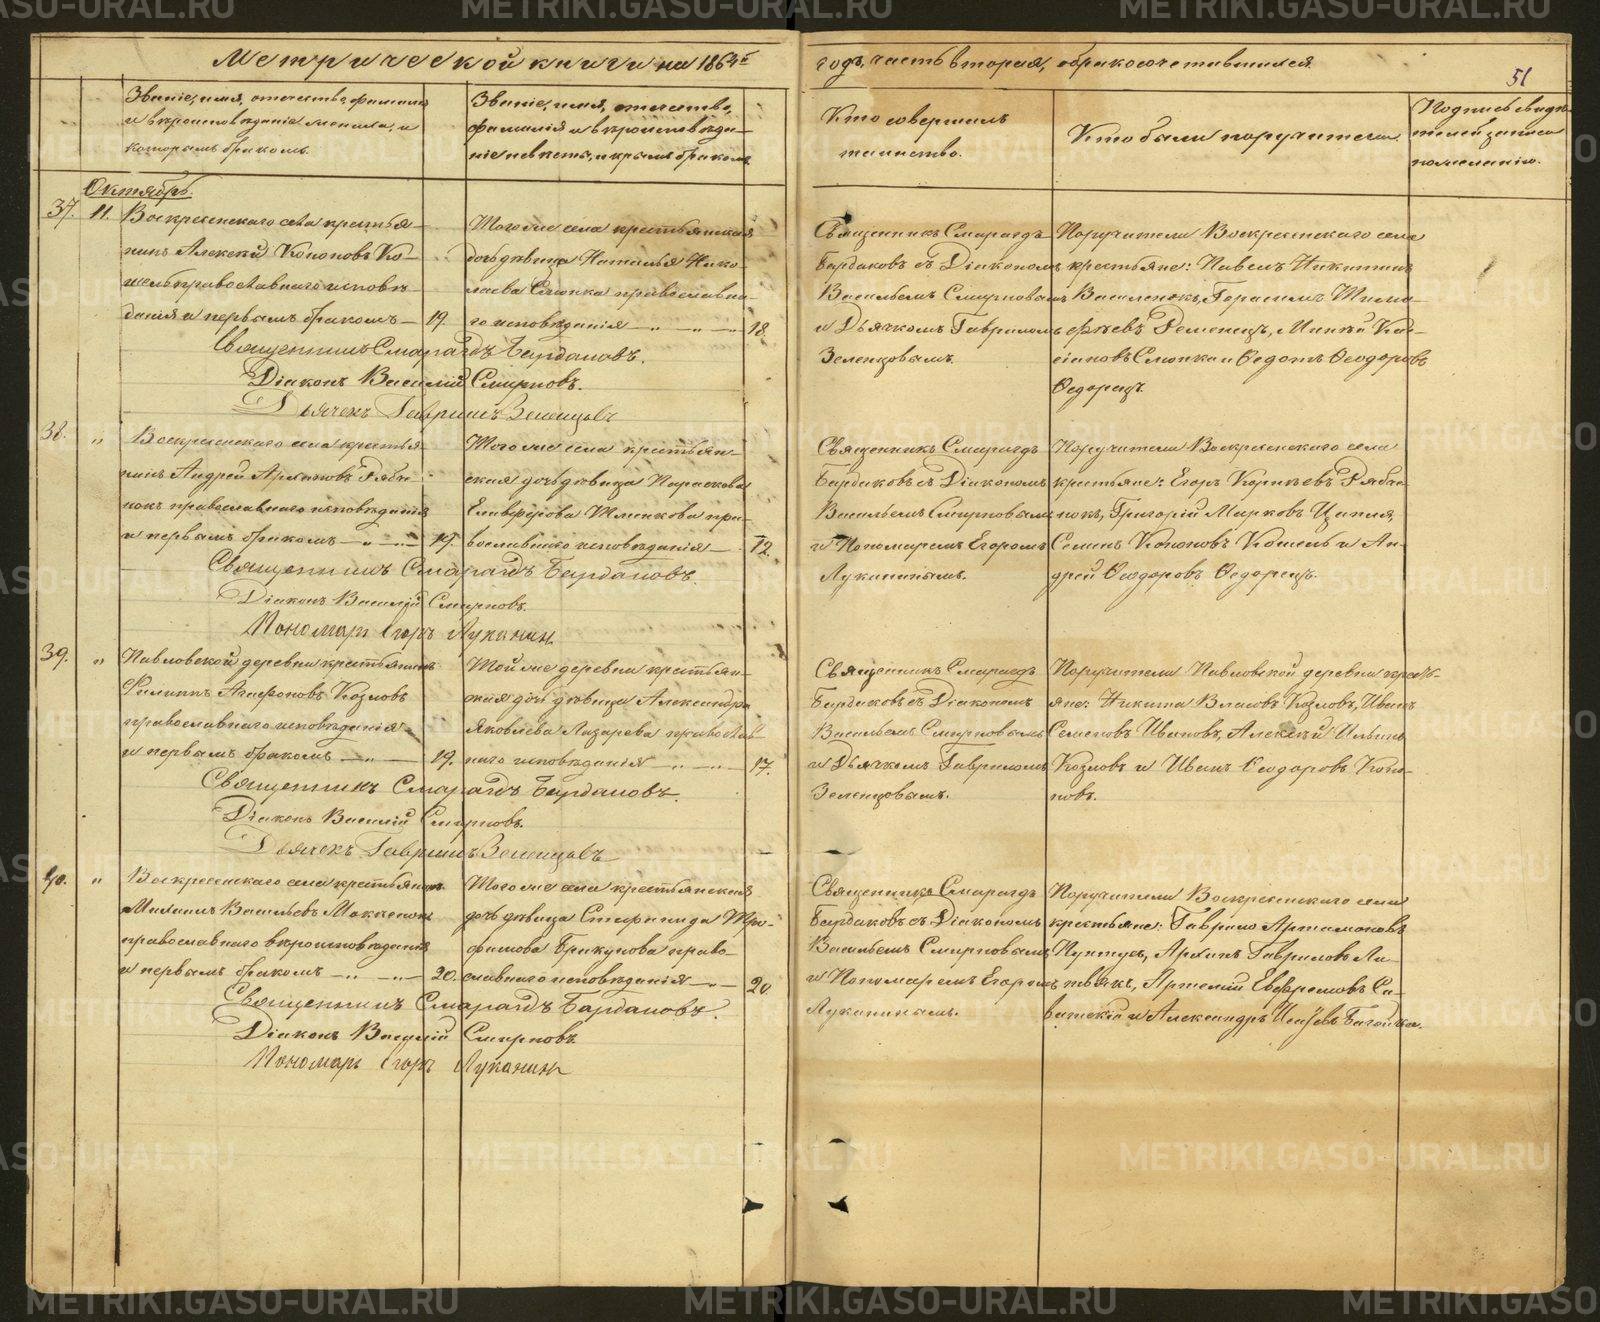 Метрической книги на 1864й
годъ, часть вторая, о бракосочетавшихся.
51
Званіе, имя, отчество, фамилія
и вѣроисповѣданіе жениха, и
которымъ бракомъ.
Званіе, имя, отчество,
фамилія и вѣроисповѣда-
ніе невѣсты, и
бракомъ
Кто совершалъ
таинство.
Кто были поручители.
Подпись свидѣ-
телей записи
по желанію.
Октябрь.
37. 11. Воскресенскаго села крестья-
нинъ Алексѣй Кононовъ Ко-
шель православнаго исповѣ-
данія и первымъ бракомъ 19.
Того же села крестьянская
дочь дѣвица Наталья Нико-
лаева Слюнка православна-
го исповѣданія 18.
Священникъ Смарагдъ
Бардаковъ съ Діакономъ
Васильемъ Смирновымъ
и Дьячкомъ Гавриломъ
Зеленцовымъ.
Поручители Воскресенскаго села
крестьяне: Павелъ Никитинъ
Василенокъ, Герасимъ Тимо-
фѣевъ
сіановъ Слюнка и Ѳедотъ Ѳеодоровъ
Ѳедорецъ.
Священникъ Смарагдъ Бардаковъ.
Діаконъ Василій Смирновъ.
Дьячекъ Гавриилъ Зеленцовъ
38. „ Воскресенскаго села крестья-
нинъ Андрей Архиповъ Рябчи-
нокъ православнаго исповѣданія
и первымъ бракомъ 19.
Того же села крестьян-
ская дочь дѣвица Параскева
Елевферова
вославнаго исповѣданія
Священникъ Смарагдъ
Бардаковъ съ Діакономъ
Васильемъ Смирновымъ
и Пономаремъ Егоромъ
Луканинымъ.
Поручители Воскресенскаго села
крестьяне: Егоръ Корнѣевъ Рябчи-
нокъ, Григорій Марковъ Цапля,
Семенъ Кононовъ Кошель и Ан-
дрей Ѳеодоровъ Ѳедорецъ.
Священникъ Смарагдъ Бардаковъ.
Діаконъ Василій Смирновъ.
Пономарь Егоръ Луканин
39. „ Павловской деревни крестьянинъ
Филиппъ Агафоновъ Козловъ
православнаго исповѣданія
и первымъ бракомъ 19.
Той же деревни крестьян-
ская дочь дѣвица Александра
Яковлева Лазарева православ-
наго исповѣданія 17.
Священникъ Смарагдъ
Бардаковъ съ Діакономъ
Васильемъ Смирновымъ
и Дьячкомъ Гавриломъ
Зеленцовымъ.
Поручители Павловской деревни кресть-
яне: Никита Власовъ Козловъ, Иванъ
Семеновъ Ивановъ, Алексѣй Ильинъ
Козловъ и Иванъ Ѳеодоровъ Коно-
новъ.
Священникъ Смарагдъ Бардаковъ.
Діаконъ Василій Смирновъ.
Дьячекъ Гавриилъ Зеленцовъ
40. „ Воскресенскаго села крестьянинъ
Михаилъ Васильевъ
православнаго вѣроисповѣданія
и первымъ бракомъ 20.
Того же села крестьянская
дочь дѣвица Стефанида Тро-
фимова Брикунова право-
славнаго исповѣданія 20.
Священникъ Смарагдъ
Бардаковъ съ Діакономъ
Васильемъ Смирновымъ
и Пономаремъ Егоромъ
Луканинымъ.
Поручители Воскресенскаго села
крестьяне: Гаврило Артамоновъ
Пунтусъ, Архипъ Гавриловъ Ли-
твякъ, Артемій Евфремовъ Са-
и Александръ
Священникъ Смарагдъ Бардаковъ.
Діаконъ Василій Смирновъ
Пономарь Егоръ Луканин
METRIKI.GASO-URAL.RU